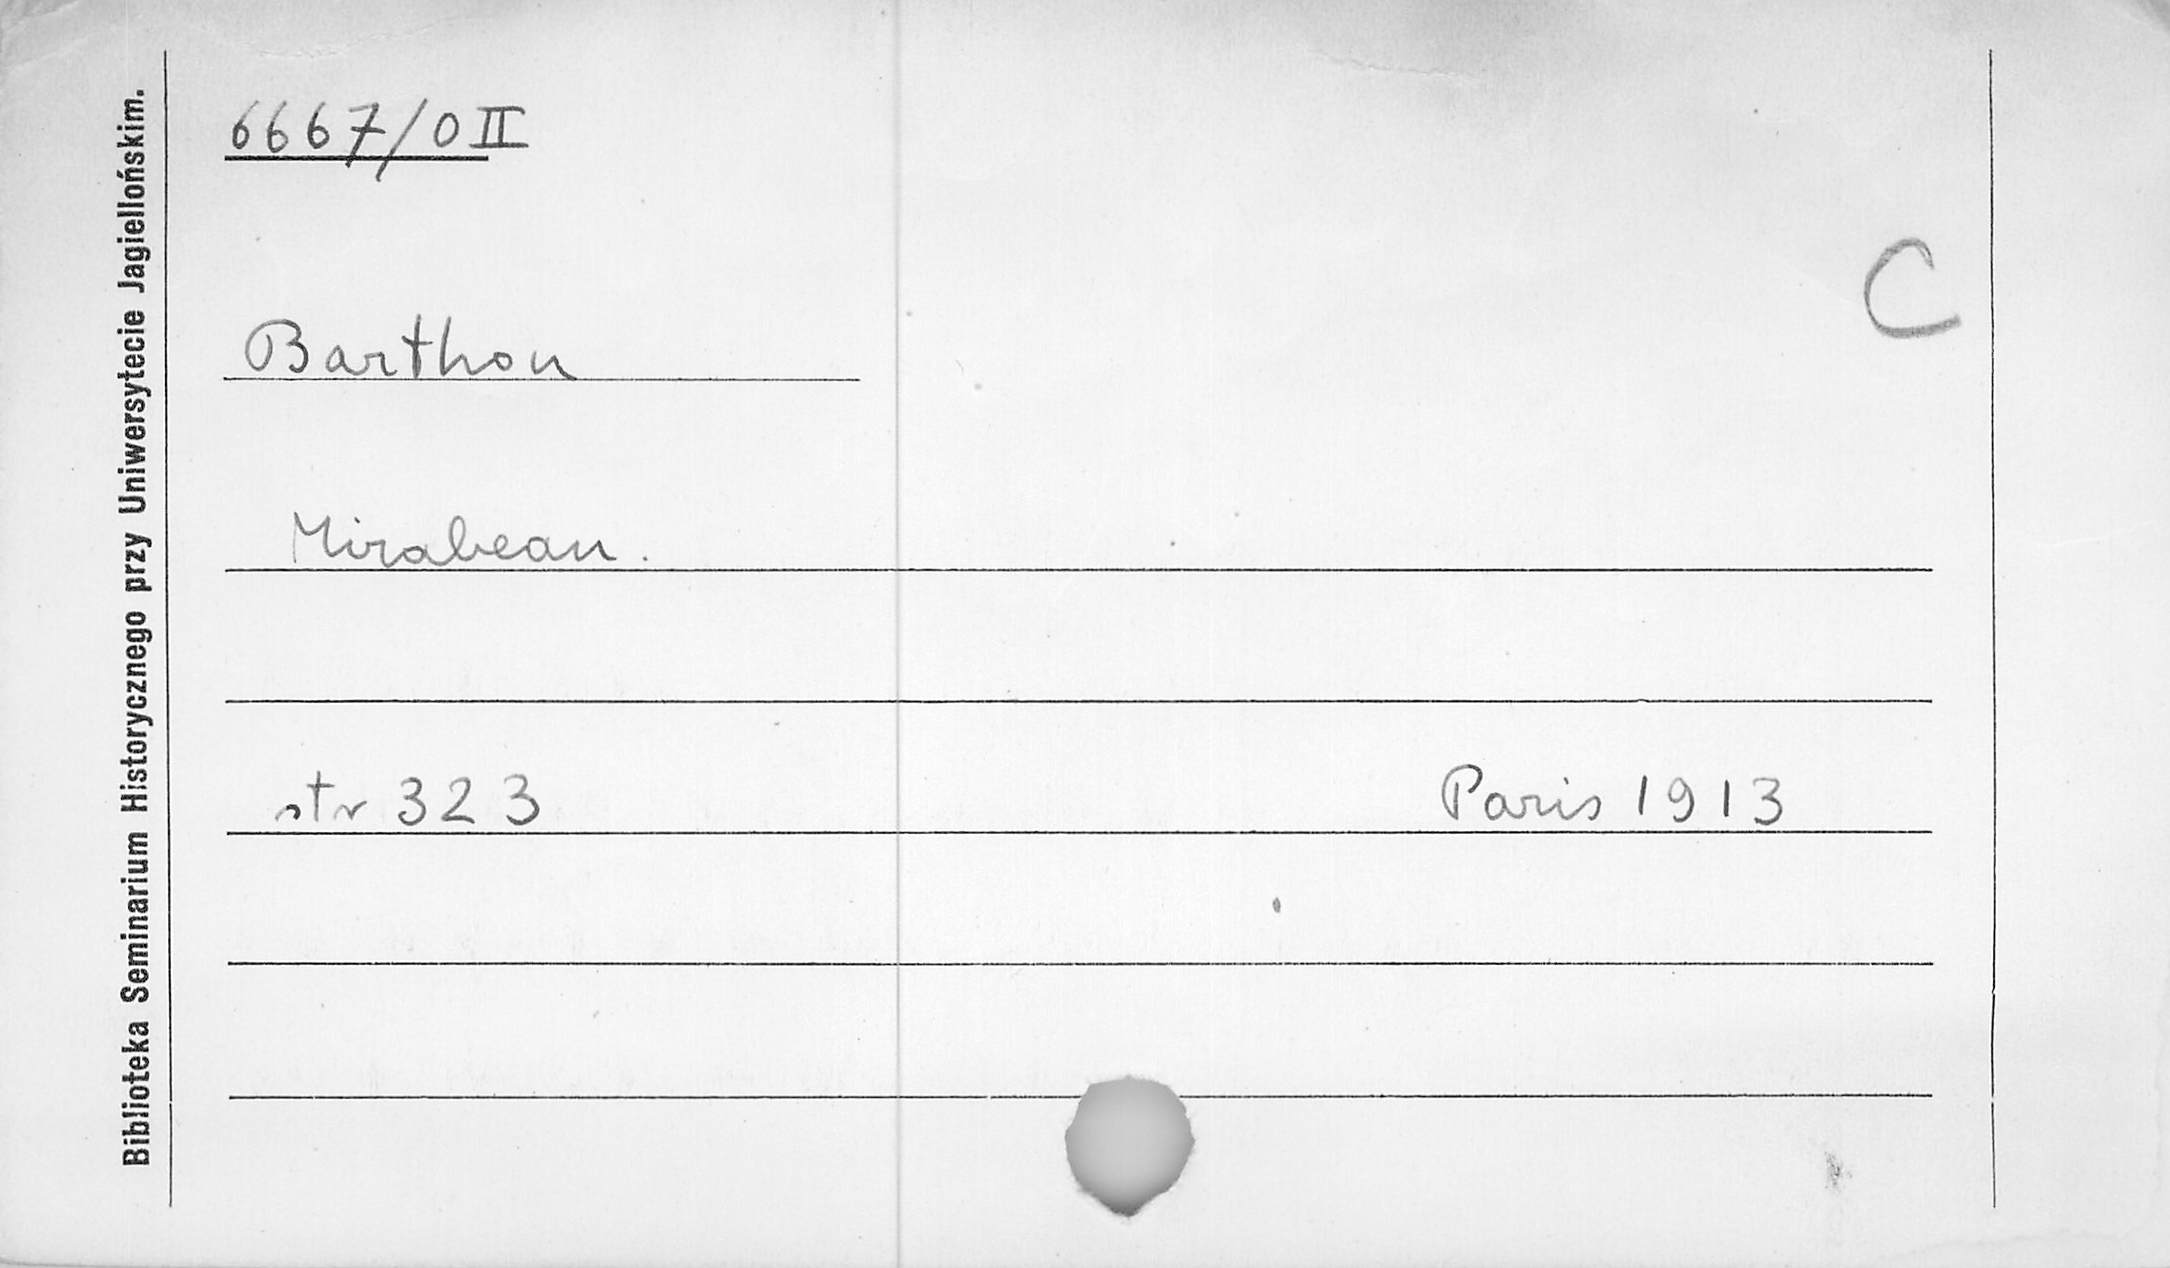 6667/0 II
C
Barthou
Mirabeau.
str 323 Paris 1913
Biblioteka Seminarium Historycznego przy Uniwersytecie Jagiellońskim.